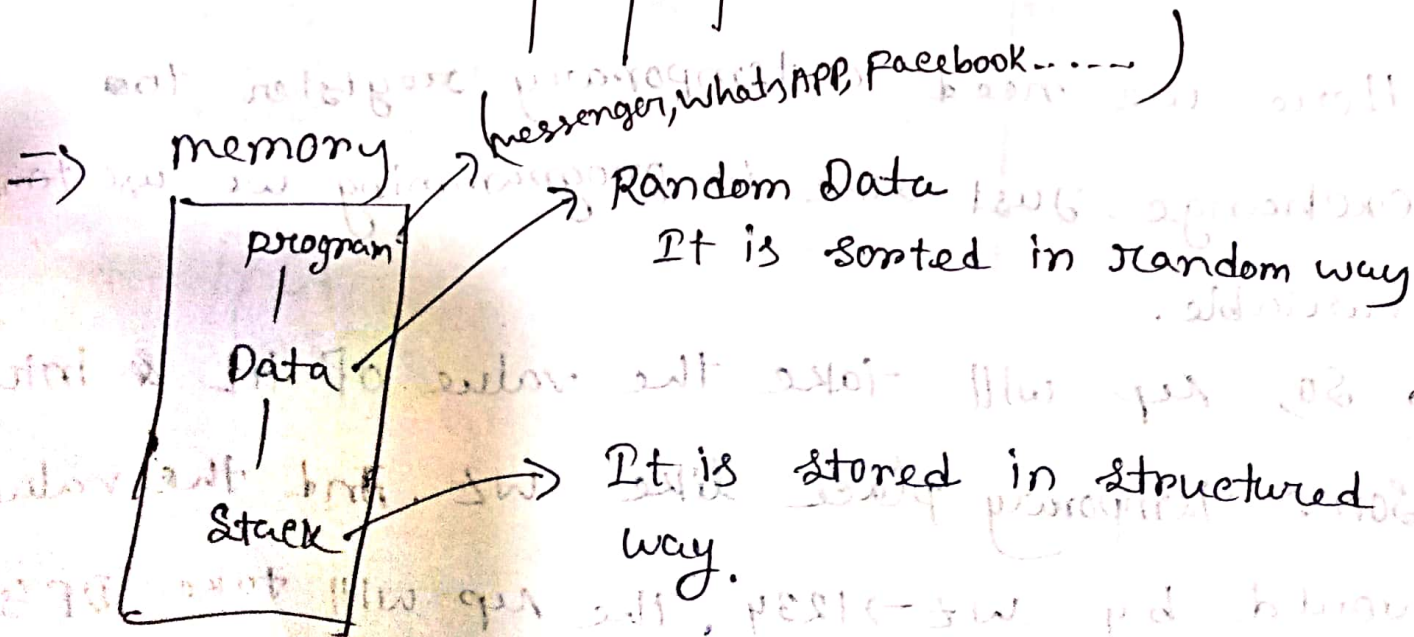 (messenger, WhatsAPP, Facebook......)
=> memory
program
Random Data
It is sorted in random way
Data
Stack
It is stored in structured
way.